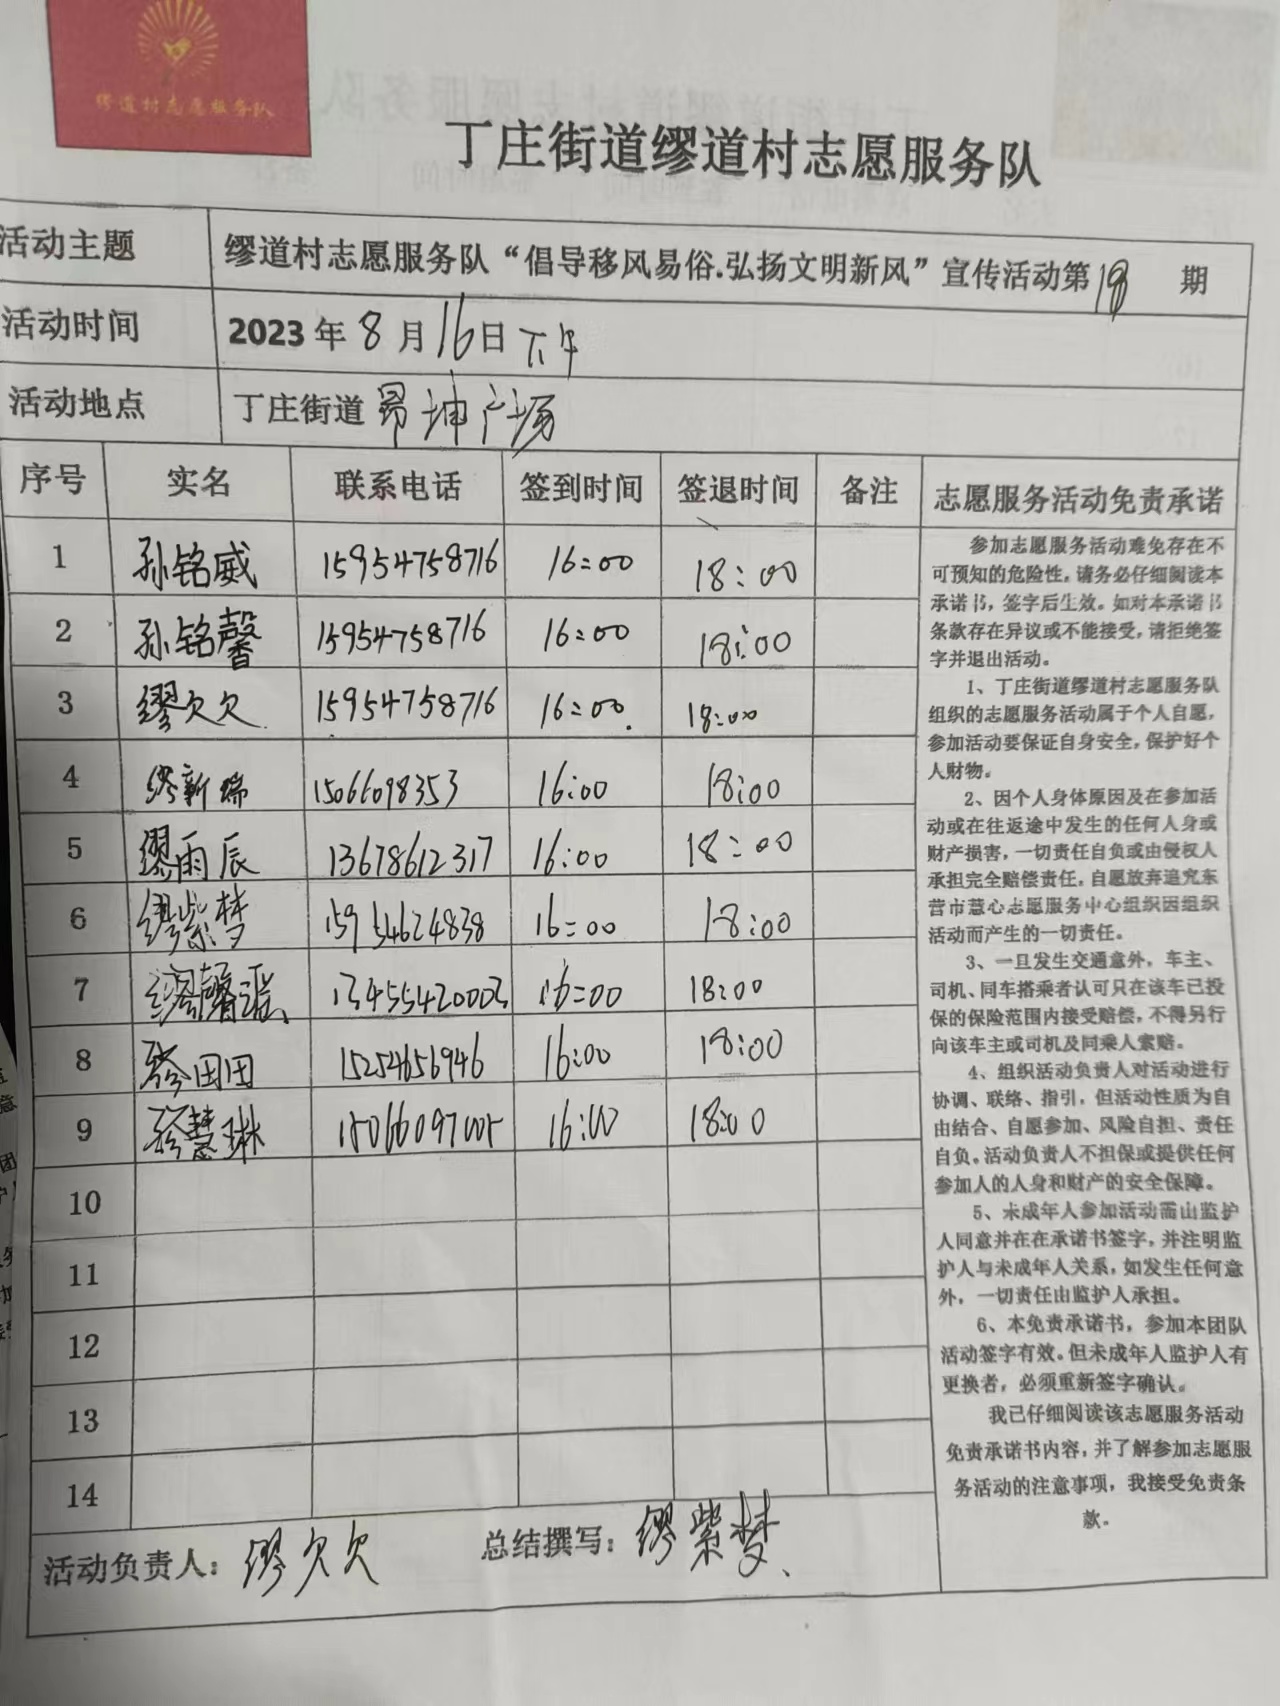 缪道村志愿服务队
丁庄街道缪道村志愿服务队
活动主题 缪道村志愿服务队“倡导移风易俗.弘扬文明新风”宣传活动第18期
活动时间 2023年8月16日下午
活动地点 丁庄街道昂坤广场
序号 实名 联系电话 签到时间 签退时间 备注 志愿服务活动免责承诺
1 孙铭威 15954758716 16:00 18:00
2 孙铭馨 15954758716 16:00 18:00
3 缪欠欠 15954758716 16:00 18:00
4 缪新瑞 15066098353 16:00 18:00
5 缪雨辰 13678612317 16:00 18:00
6 缪紫梦 15954624838 16:00 18:00
7 缪馨谣 13455420003 16:00 18:00
8 缪田田 15254651946 16:00 18:00
9 缪慧琳 16:00 18:00
10
11
12
13
14
参加志愿服务活动难免存在不
可预知的危险性,请务必仔细阅读本
承诺书，签字后生效。如对本承诺书
条款存在异议或不能接受,请拒绝签
字并退出活动。
1、丁庄街道缪道村志愿服务队
组织的志愿服务活动属于个人自愿，
参加活动要保证自身安全,保护好个
人财物。
2、因个人身体原因及在参加活
动或在往返途中发生的任何人身或
财产损害，一切责任自负或由侵权人
承担完全赔偿责任,自愿放弃追究东
营市慧心志愿服务中心组织因组织
活动而产生的一切责任。
3、一旦发生交通意外，车主、
司机、同车搭乘者认可只在该车已投
保的保险范围内接受赔偿，不得另行
向该车主或司机及同乘人索赔。
4、组织活动负责人对活动进行
协调、联络、指引，但活动性质为自
由结合、自愿参加、风险自担、责任
自负。活动负责人不担保或提供任何
参加人的人身和财产的安全保障。
5、未成年人参加活动需由监护
人同意并在在承诺书签字，并注明监
护人与未成年人关系，如发生任何意
外，一切责任由监护人承担。
6、本免责承诺书，参加本团队
活动签字有效。但未成年人监护人有
更换者，必须重新签字确认。
我已仔细阅读该志愿服务活动
免责承诺书内容，并了解参加志愿服
务活动的注意事项，我接受免责条
款。
活动负责人：缪欠欠 总结撰写：缪紫梦